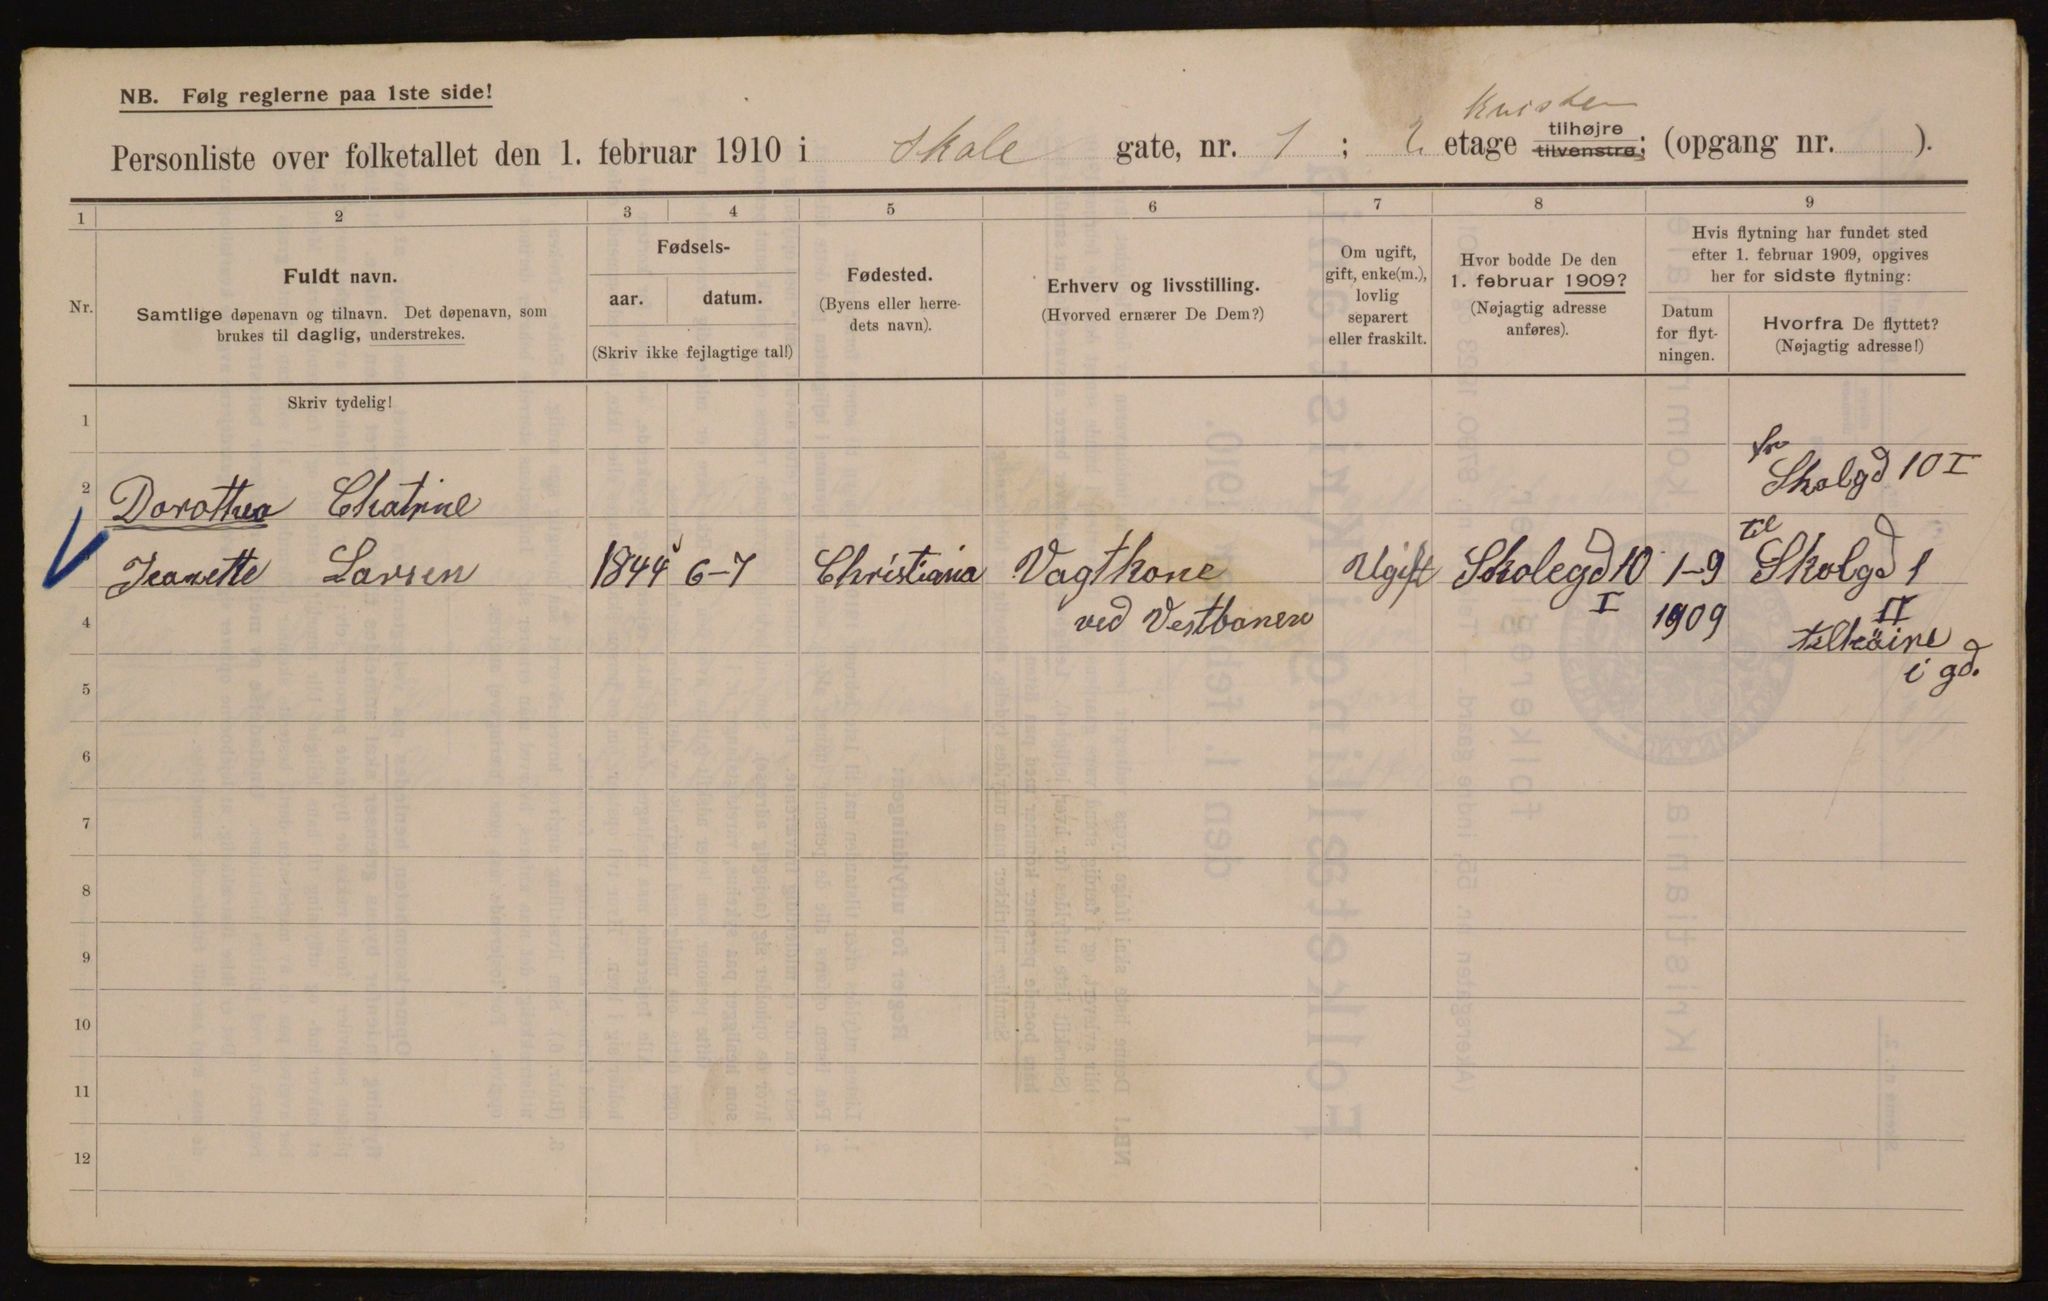 NB. Følg reglerne paa 1ste side!
Kvisten
Personliste over folketallet den 1. februar 1910 i Skole gate, nr. 1 ; 2. etage tilhøjre tilvenstre; (opgang nr. ).
1 2 3 4 5 6 7 8 9
Nr.
Fuldt navn.
Samtlige døpenavn og tilnavn. Det døpenavn, som
brukes til daglig, understrekes.
Fødsels-
aar. datum.
(Skriv ikke fejlagtige tal!)
Fødested.
(Byens eller herre-
dets navn).
Erhverv og livsstilling.
(Hvorved ernærer De Dem?)
Om ugift,
gift, enke(m.),
lovlig
separert
eller fraskilt.
Hvor bodde De den
1. februar 1909?
(Nøjagtig adresse
anføres).
Hvis flytning har fundet sted
efter 1. februar 1909, opgives
her for sidste flytning:
Datum
for flyt-
ningen.
Hvorfra De flyttet?
(Nøjagtig adresse!)
Skriv tydelig!
1
fr
Skolgd 10 I
2
Dorothea Chatrine
til
Jeanette Larsen 1844 6-7 Christiania Vagtkone Ugift Skolegd 10 1-9 Skolgd 1
I II
4 ved Vestbanen 1909 tilhöire
i gd.
5
6
7
8
9
10
11
12